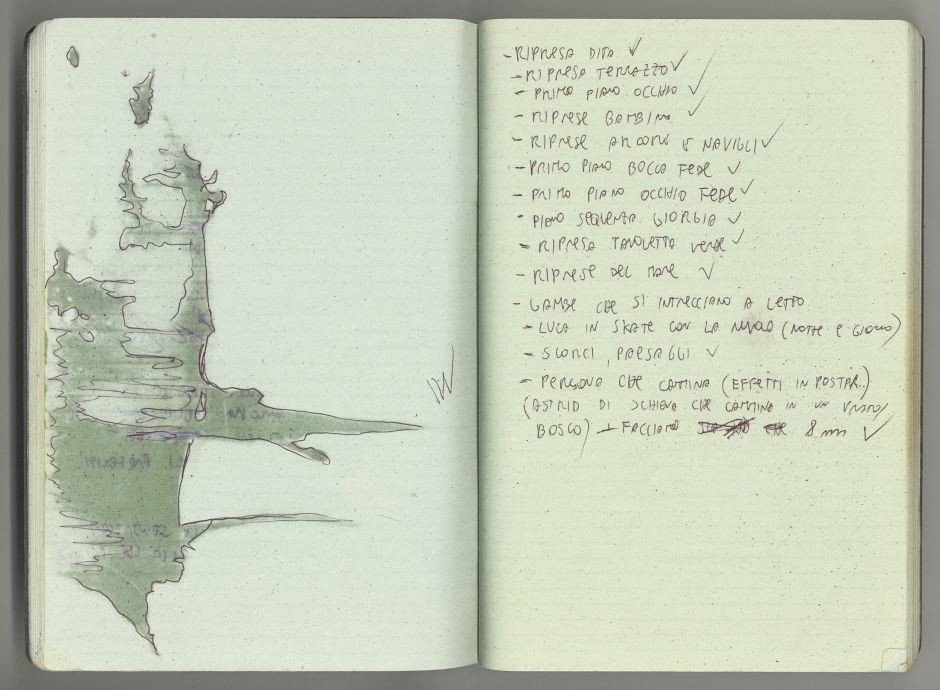 - RIPRESA DITA ✓
- RIPRESA TERRAZZO ✓
- PRIMO PIANO OCCHIO ✓
- RIPRESE BAMBINA ✓
- RIPRESE NAVIGLI ✓
- PRIMO PIANO BOCCA FEDE ✓
- PRIMO PIANO OCCHIO FEDE ✓
- PIANO SEQUENZA GIORGIA ✓
- RIPRESA TAVOLETTA VERDE ✓
- RIPRESE DEL MARE ✓
- GAMBE CHE SI INTRECCIANO A LETTO
- LUCA IN SKATE CON LA (NOTTE E GIORNO)
- SCORCI, PAESAGGI ✓
- PERSONA CHE CAMMINA (EFFETTI IN POSTAR..)
(ASTRID DI SCHIENA CHE CAMMINA IN UN PRATO/
BOSCO) → FACCIAMO 8 mm ✓